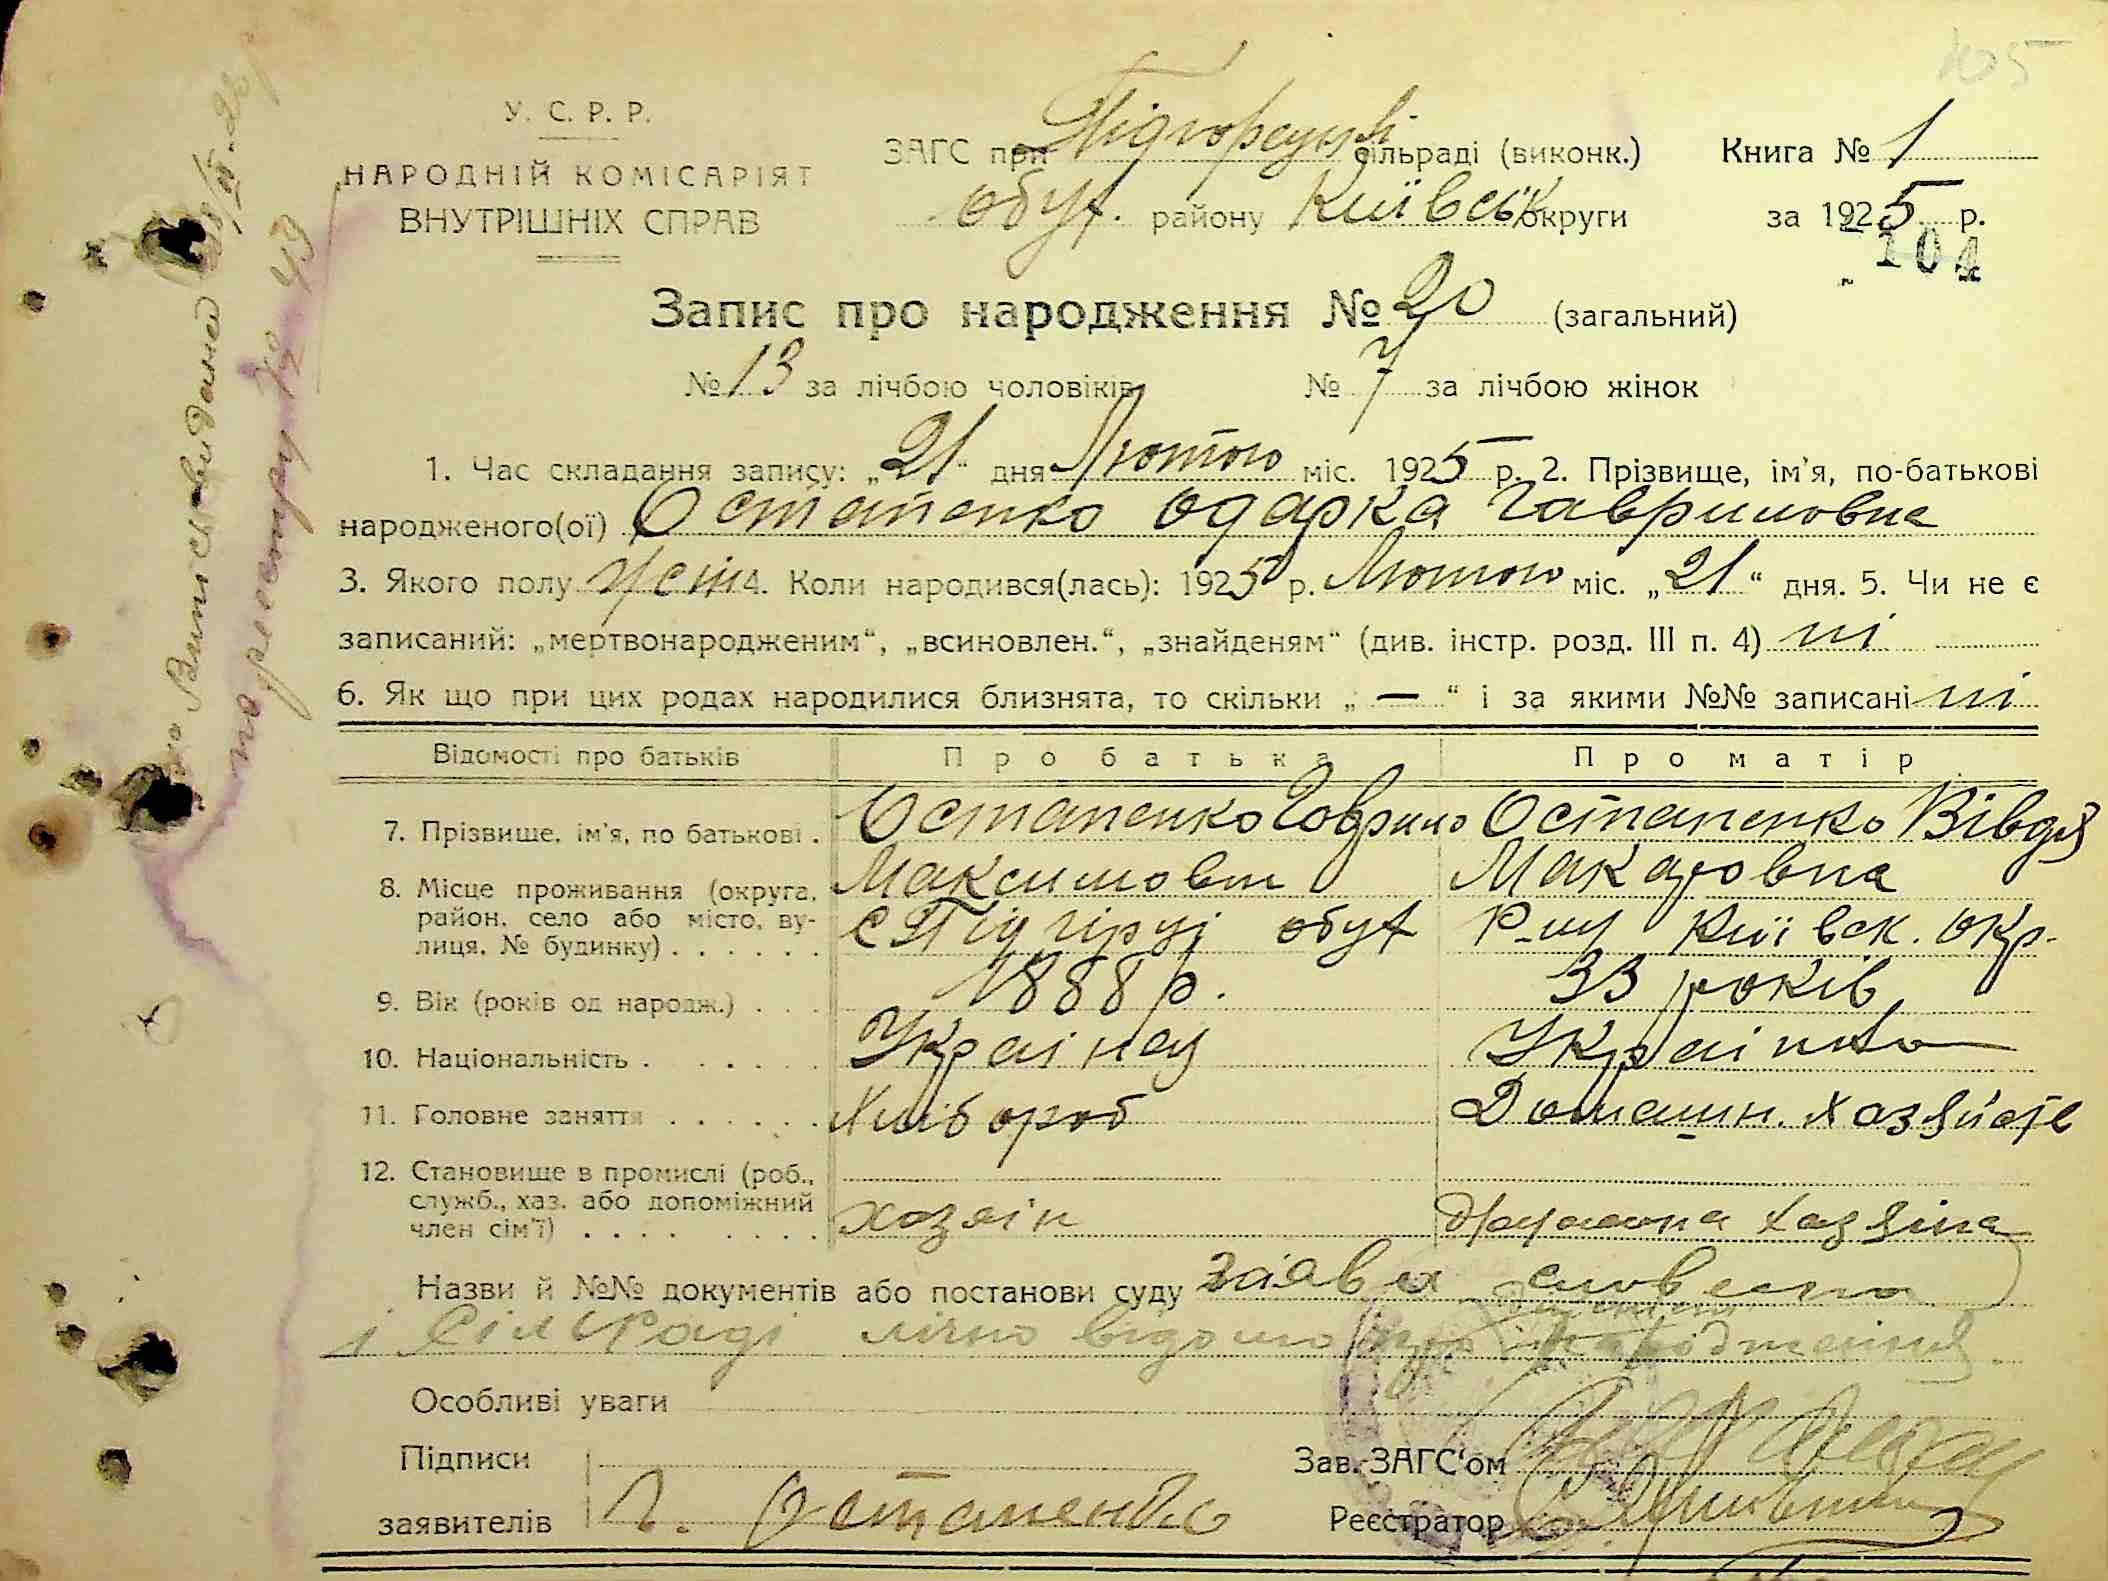 105
У. С. Р. Р.
НАРОДНІЙ КОМІСАРІЯТ
ВНУТРІШНІХ СПРАВ
ЗАГС при Підгорецькі сільраді (виконк.) Книга № 1
обух. району Київськ округи за 1925 р.
104
Запис про народження № 20 (загальний)
№ 13 за лічбою чоловіків № 7 за лічбою жінок
1. Час складання запису: „21“ дня Лютого міс. 1925 р. 2. Прізвище, ім'я, по-батькові
народженого(ої) Остапенко Одарка Гавриловна
3. Якого полу жін 4. Коли народився(лась): 1925 р. Лютого міс. „21“ дня. 5. Чи не є
записаний: „мертвонародженим“, „всиновлен.“, „знайденям“ (див. інстр. розд. III п. 4) ні
6. Як що при цих родах народилися близнята, то скільки „—“ і за якими №№ записані ні
Відомості про батьків Про батька Про матір
7. Прізвище, ім'я, по батькові . Остапенко Гаврило Остапенко Вівдя
Максимович Макаровна
8. Місце проживання (округа, район, село або місто, вулиця, № будинку) . . . . . . с Підгірці обух р-ну Київск. окр.
9. Вік (років од народж.) . . . 1888 р. 33 років
10. Національність . . . . . Українец Українка
11. Головне заняття . . . . . . Хлібороб Домашн. хазяйств
12. Становище в промислі (роб., служб., хаз. або допоміжний член сім'ї) . . . . . . . . хазяін дружина хазяіна
Назви й №№ документів або постанови суду заява словесна
і Сільраді лічно відомо про народження
Особливі уваги
Підписи
заявителів Г. Остапенко
Зав. ЗАГС'ом
Реєстратор
Випись видана
по реєстру № 43